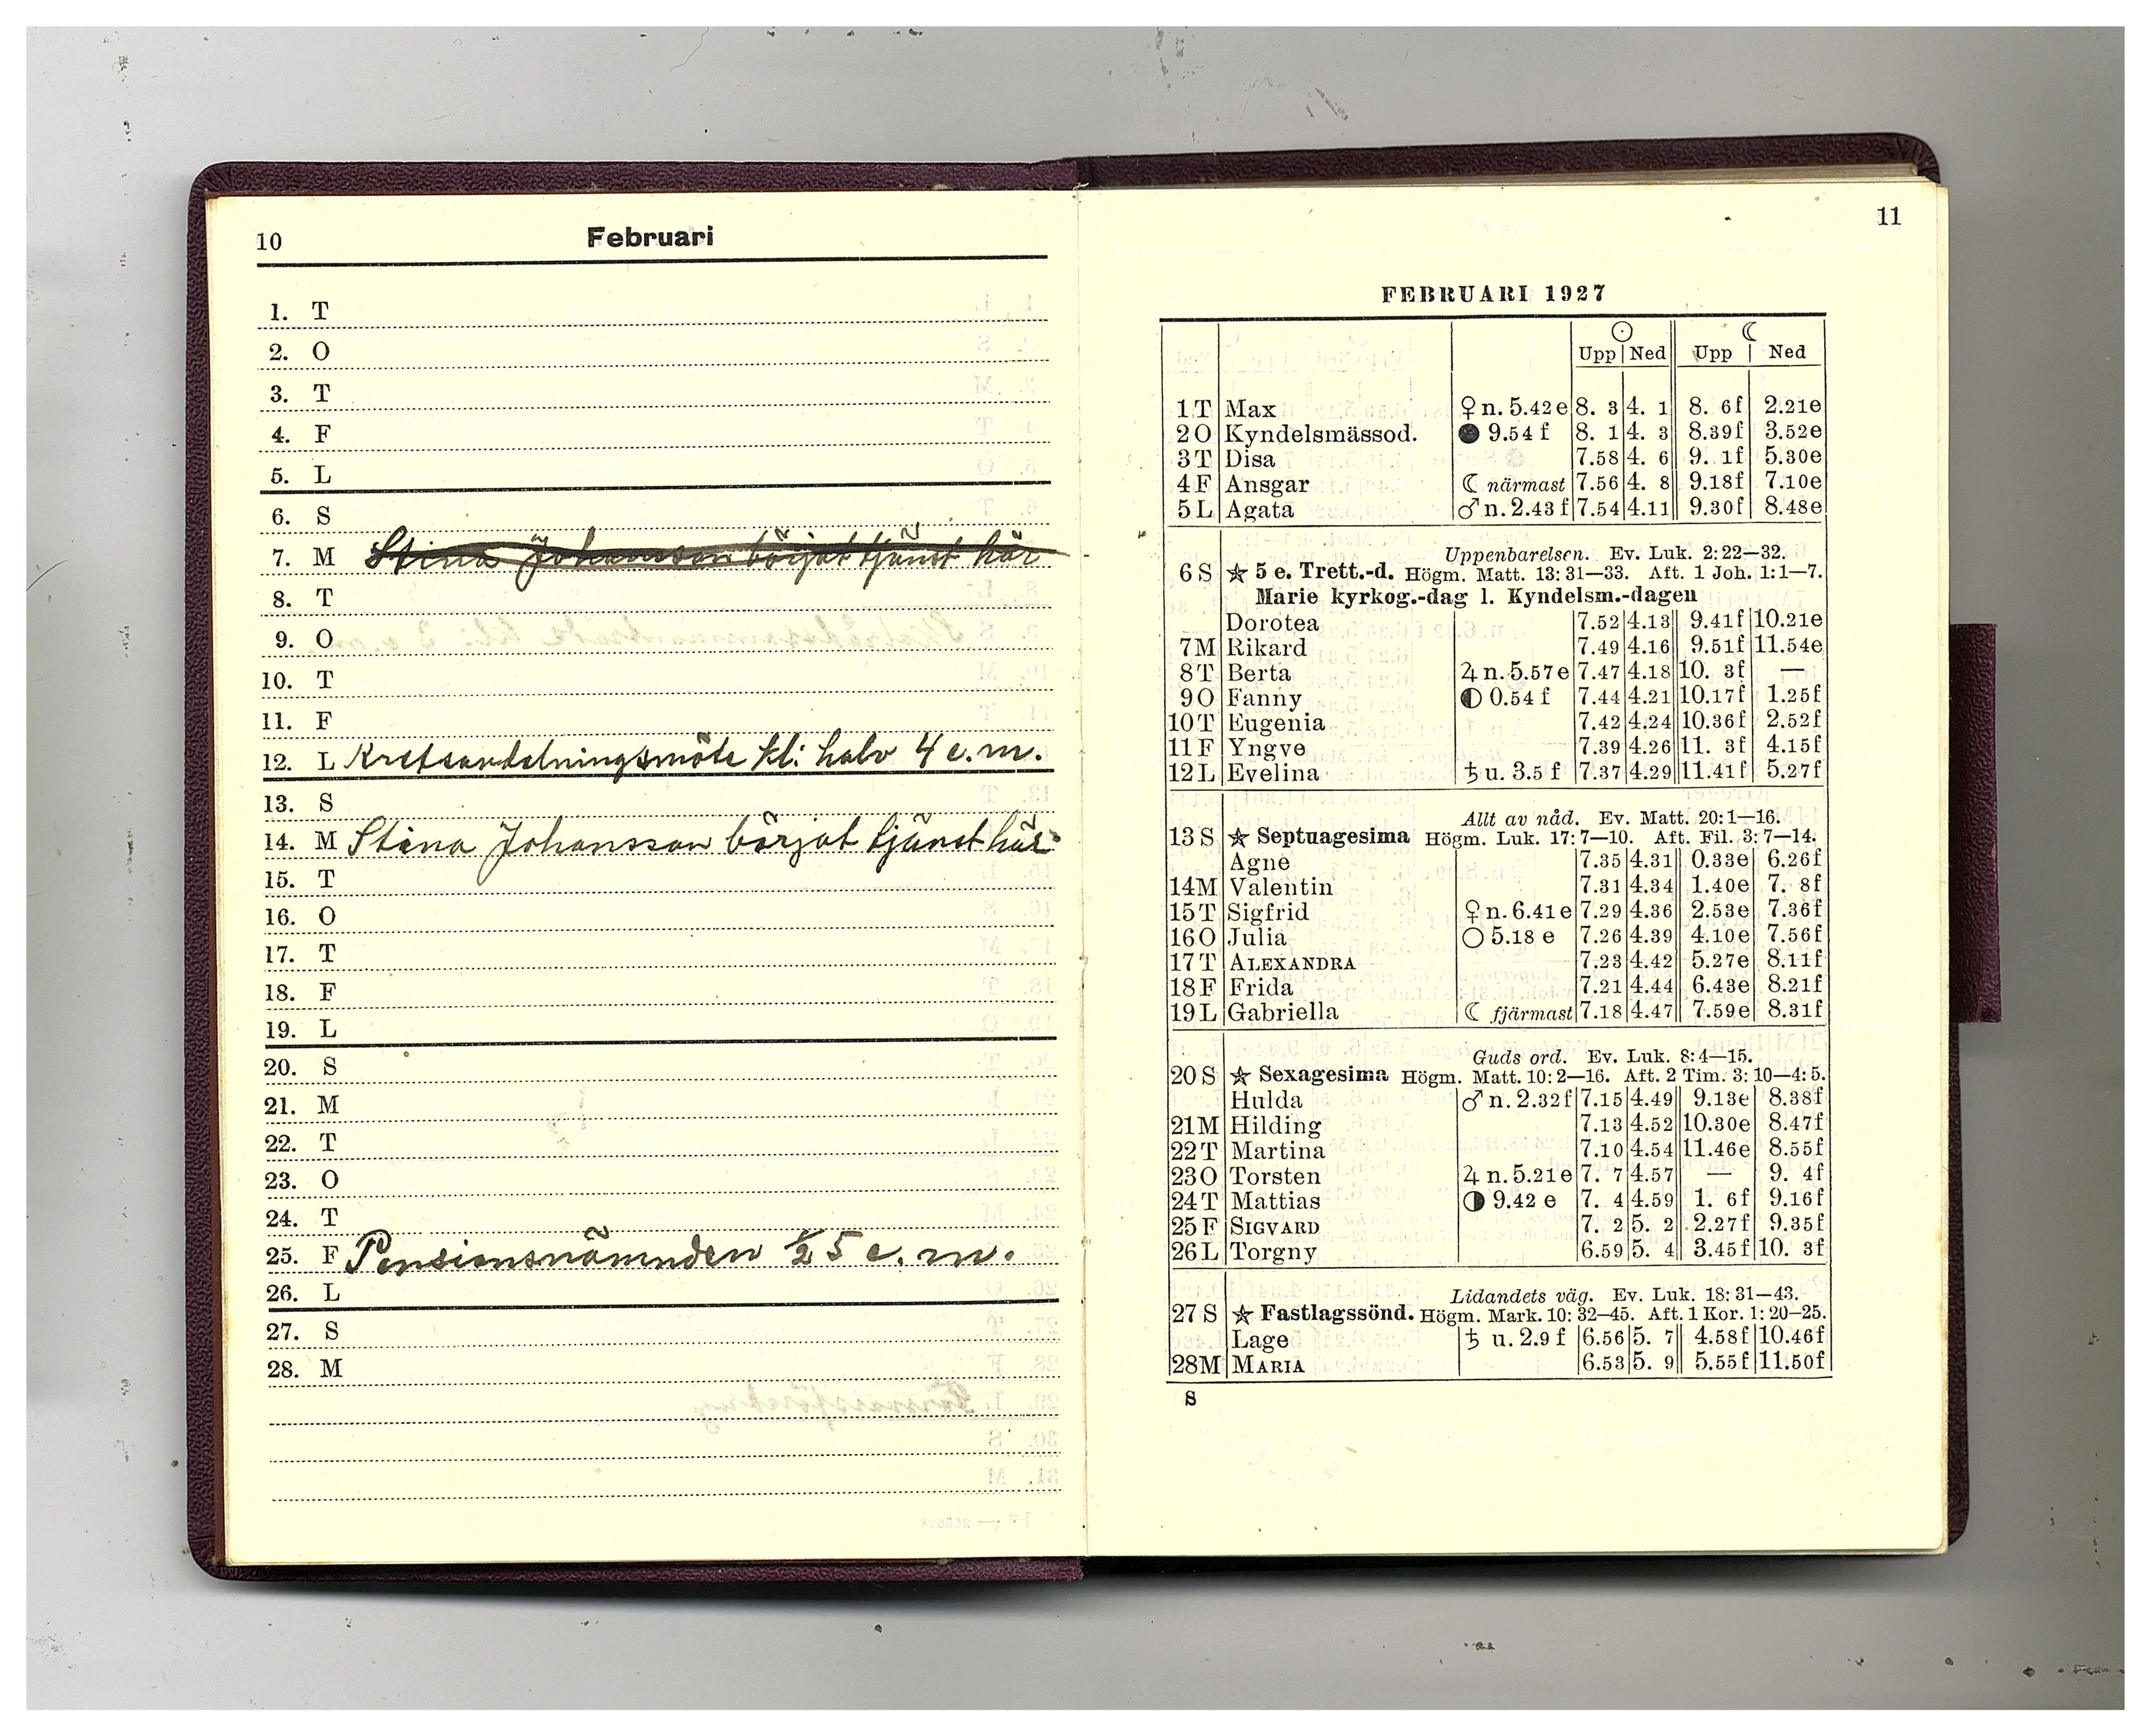 10 Februari
1. T
2. O
3. T
4. F
5. L
6. S
7. M Stina Johansson börjat tjänst här
8. T
9. O
10. T
11. F
12. L Kretsavdelningsmöte kl: halv 4 e.m.
13. S
14. M Stina Johansson börjat tjänst här
15. T
16. O
17. T
18. F
19. L
20. S
21. M
22. T
23. O
24. T
25. F Pensionsnämnden ½ 5 e. m.
26. L
27. S
28. M
11
FEBRUARI 1927
☉ ☾
Upp Ned Upp Ned
1 T Max ♀ n. 5.42 e 8. 3 4. 1 8. 6f 2.21e
2 O Kyndelsmässod. ● 9.54 f 8. 1 4. 3 8.39f 3.52e
3 T Disa 7.58 4. 6 9. 1f 5.30e
4 F Ansgar ☾ närmast 7.56 4. 8 9.18f 7.10e
5 L Agata ♂ n. 2.43 f 7.54 4.11 9.30f 8.48e
Uppenbarelsen. Ev. Luk. 2: 22—32.
6 S ★ 5 e. Trett.-d. Högm. Matt. 13: 31—33. Aft. 1 Joh. 1: 1—7.
Marie kyrkog.-dag l. Kyndelsm.-dagen
Dorotea 7.52 4.13 9.41f 10.21e
7 M Rikard 7.49 4.16 9.51f 11.54e
8 T Berta ♃ n. 5.57 e 7.47 4.18 10. 3f —
9 O Fanny ◐ 0.54 f 7.44 4.21 10.17f 1.25f
10 T Eugenia 7.42 4.24 10.36f 2.52f
11 F Yngve 7.39 4.26 11. 3f 4.15f
12 L Evelina ♄ u. 3.5 f 7.37 4.29 11.41f 5.27f
Allt av nåd. Ev. Matt. 20: 1—16.
13 S ★ Septuagesima Högm. Luk. 17: 7—10. Aft. Fil. 3: 7—14.
Agne 7.35 4.31 0.33e 6.26f
14 M Valentin 7.31 4.34 1.40e 7. 8f
15 T Sigfrid ♀ n. 6.41 e 7.29 4.36 2.53e 7.36f
16 O Julia ○ 5.18 e 7.26 4.39 4.10e 7.56f
17 T ALEXANDRA 7.23 4.42 5.27e 8.11f
18 F Frida 7.21 4.44 6.43e 8.21f
19 L Gabriella ☾ fjärmast 7.18 4.47 7.59e 8.31f
Guds ord. Ev. Luk. 8: 4—15.
20 S ★ Sexagesima Högm. Matt. 10: 2—16. Aft. 2 Tim. 3: 10—4: 5.
Hulda ♂ n. 2.32 f 7.15 4.49 9.13e 8.38f
21 M Hilding 7.13 4.52 10.30e 8.47f
22 T Martina 7.10 4.54 11.46e 8.55f
23 O Torsten ♃ n. 5.21 e 7. 7 4.57 — 9. 4f
24 T Mattias ◑ 9.42 e 7. 4 4.59 1. 6f 9.16f
25 F SIGVARD 7. 2 5. 2 2.27f 9.35f
26 L Torgny 6.59 5. 4 3.45f 10. 3f
Lidandets väg. Ev. Luk. 18: 31—43.
27 S ★ Fastlagssönd. Högm. Mark. 10: 32—45. Aft. 1 Kor. 1: 20—25.
Lage ♄ u. 2.9 f 6.56 5. 7 4.58f 10.46f
28 M MARIA 6.53 5. 9 5.55f 11.50f
S